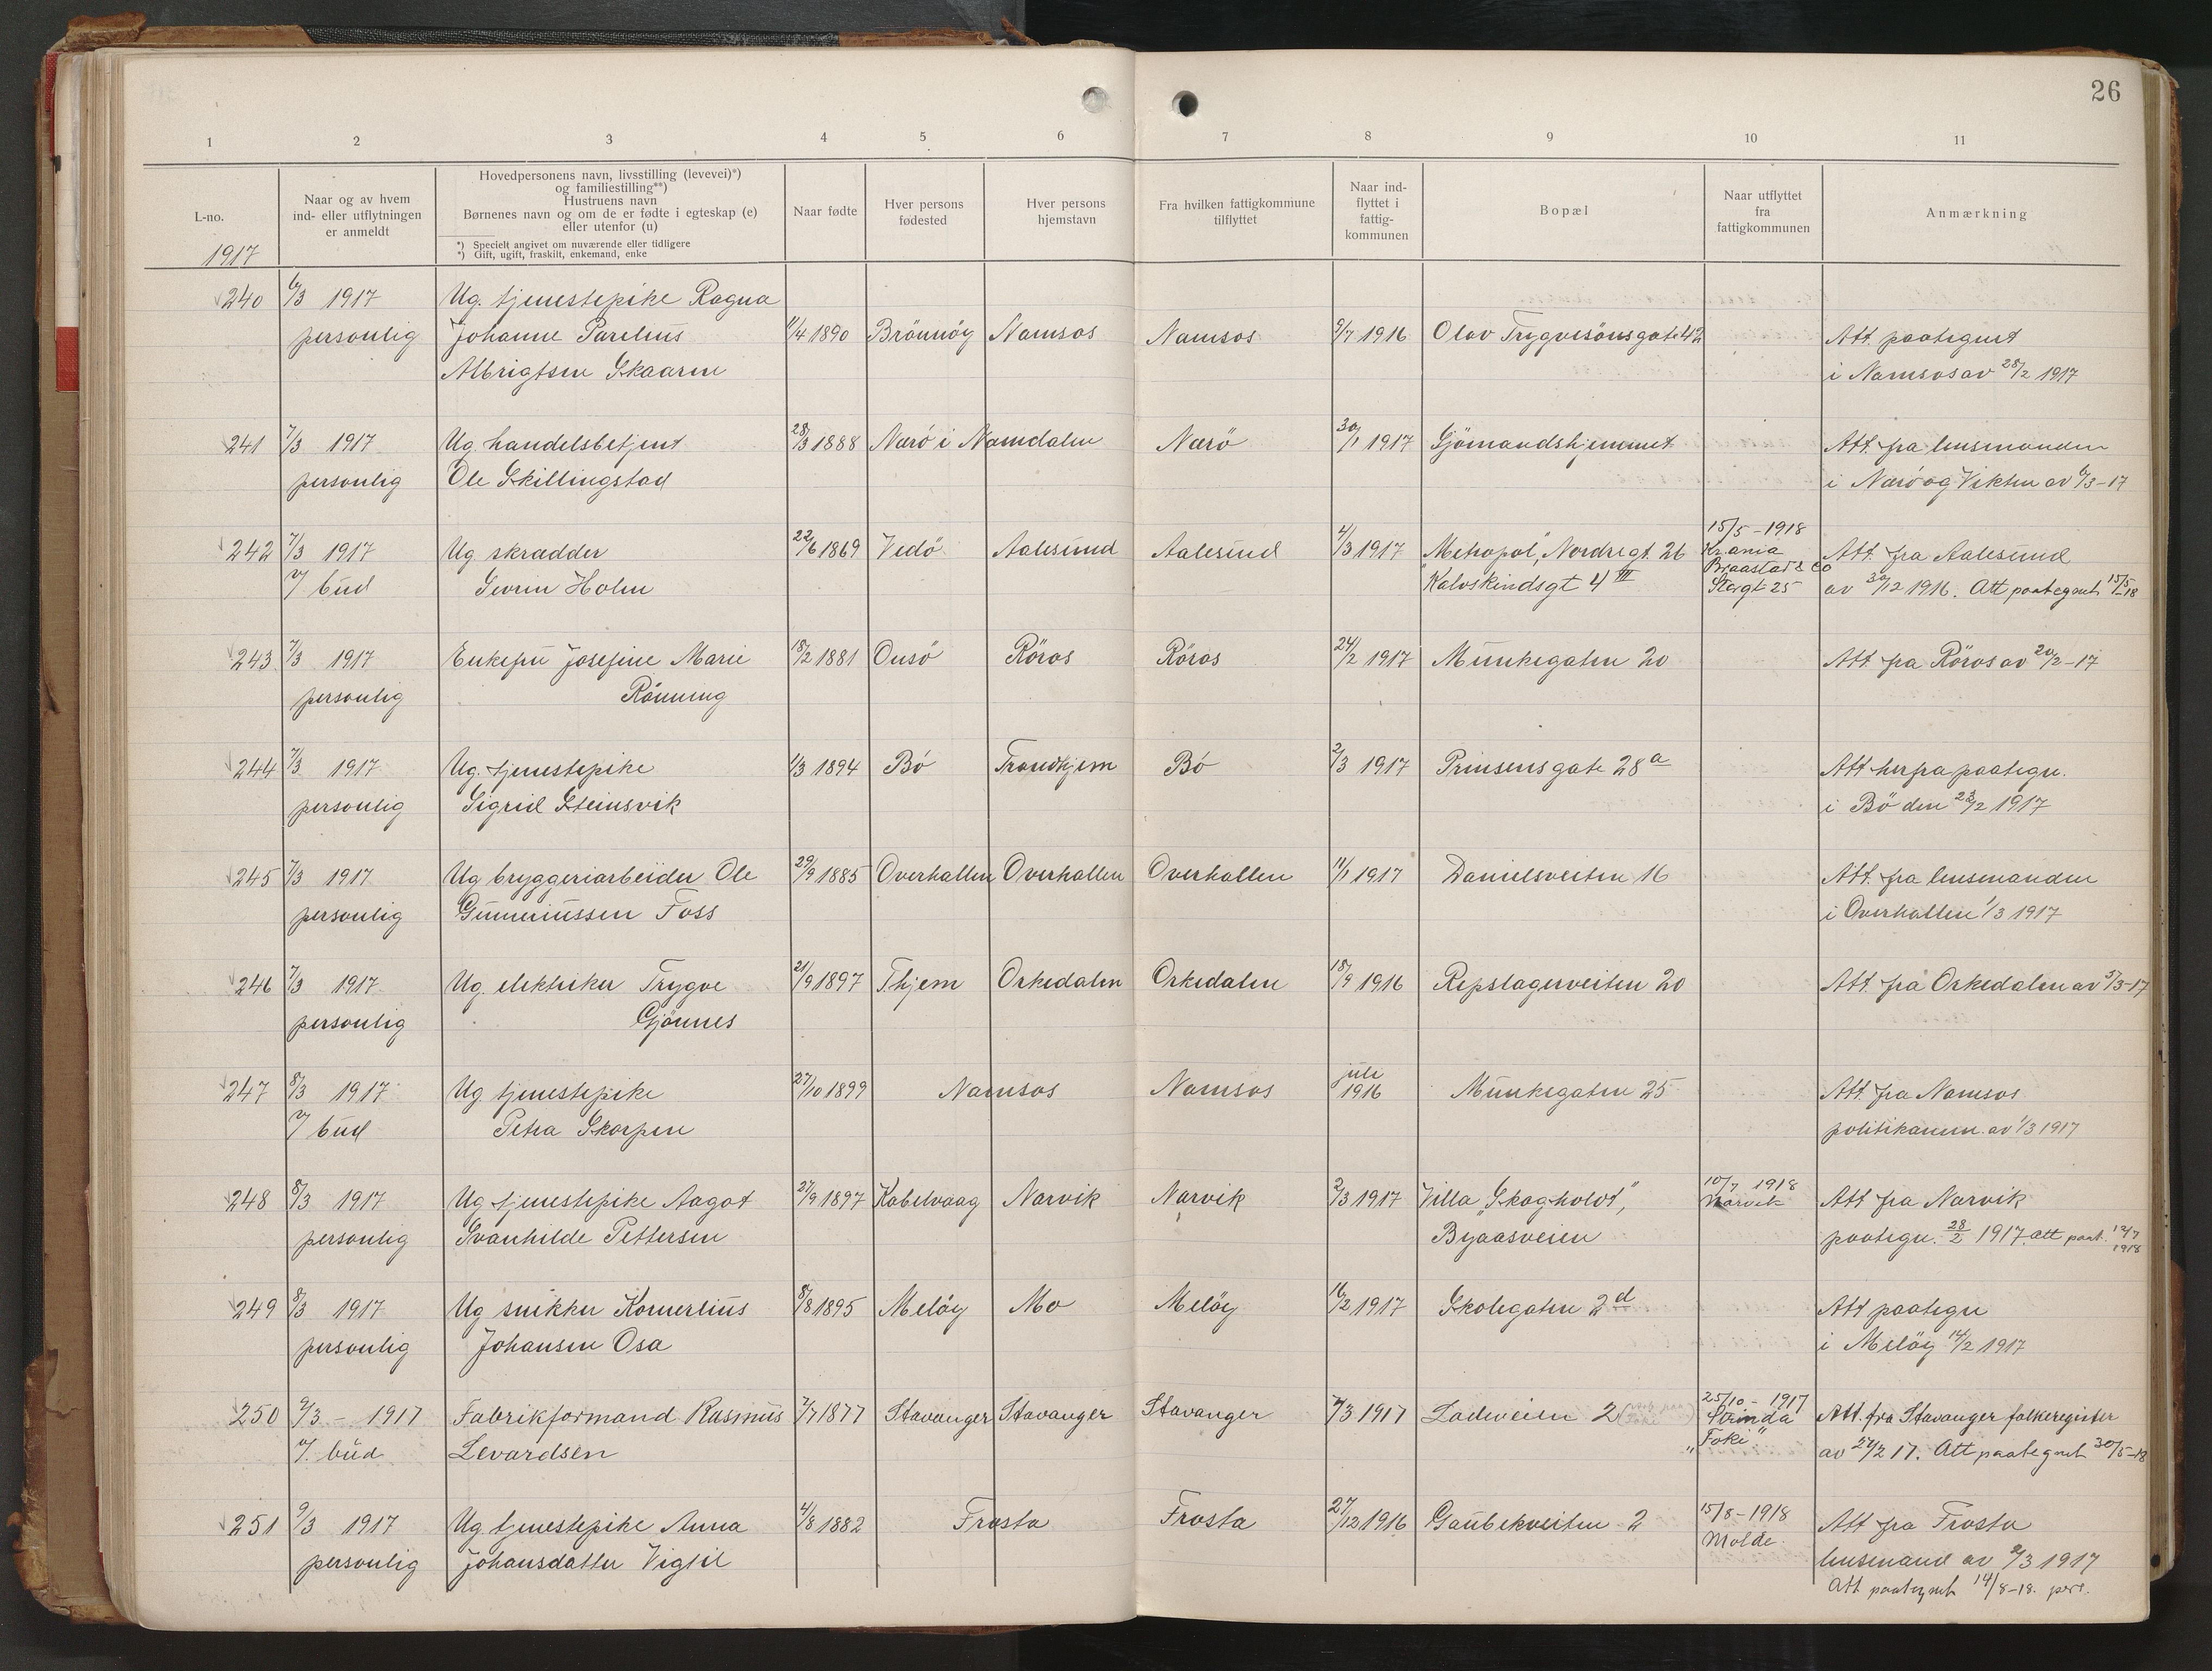 26
1 2 3 4 5 6 7 8 9 10 11
L-no.
1917
Naar og av hvem
ind- eller utflytningen
er anmeldt
Hovedpersonens navn, livsstilling (levevei)*)
og familiestilling**)
Hustruens navn
Børnenes navn og om de er fødte i egteskap (e)
eller utenfor (u)
*) Specielt angivet om nuværende eller tidligere
*) Gift, ugift, fraskilt, enkemand, enke
Naar fødte
Hver persons
fødested
Hver persons
hjemstavn
Fra hvilken fattigkommune
tilflyttet
Naar ind-
flyttet i
fattig-
kommunen
Bopæl
Naar utflyttet
fra
fattigkommunen
Anmærkning
240 6/3 1917 Ug. tjenestepike Ragna
personlig Johanne Parelius 11/4 1890 Brönnöy Namsos Namsos 9/7 1916 Olav Trygvesönsgate 42 Att. paategnet
Albrigtsen Skaaren i Namsos av 28/2 1917
241 7/3 1917 Ug. handelsbetjent 28/3 1888 Nærö i Namdalen Nærö 30/1 1917 Sjömandshjemmet Att. fra lensmanden
personlig Ole Skillingstad i Nærö og Vikten av 6/3-17
15/5-1918
242 7/3 1917 Ug skrædder 22/6 1869 Vedö Aalesund Aalesund 4/3 1917 "Metropol", Nordregt. 26 Kr.ania Att. fra Aalesund
Braastad & Co
v/ bud Severin Holm Kalvskindsgt 4 III Storgt 25 av 30/12 1916. Att paategnet 15/5-18
243 7/3 1917 Enkefru Josefine Marie 18/2 1881 Onsö Röros Röros 24/2 1917 Munkegaten 20 Att. fra Röros av 20/2-17
personlig Rönning
244 7/3 1917 Ug. tjenestepike 1/3 1894 Bö Trondhjem Bö 2/3 1917 Prinsensgate 28a Att herfra paategn.
personlig Sigrid Steinsvik i Bö den 23/2 1917
245 7/3 1917 Ug bryggeriarbeider Ole 29/9 1885 Overhallen Overhallen Overhallen 11/1 1917 Danielsveiten 16 Att. fra lensmanden
personlig Gunneriussen Foss i Overhallen 1/3 1917
246 7/3 1917 Ug. elektriker Trygve 21/9 1897 Thjem Orkedalen Orkedalen 18/9 1916 Repslagerveiten 20 Att. fra Orkedalen av 5/3-17
personlig Gjönnes
juli
247 8/3 1917 Ug tjenestepike 27/10 1899 Namsos Namsos 1916 Munkegaten 25 Att. fra Namsos
v/ bud Petra Skorpen politikammer av 1/3 1917
248 8/3 1917 Ug tjenestepike Aagot 27/9 1897 Kabelvaag Narvik Narvik 2/3 1917 Villa "Skogholdt", 10/7 1918 Narvik Att fra Narvik
personlig Svanhilde Pettersen Byaasveien paategn. 28/2 1917. att paat. 12/7 1918
249 8/3 1917 Ug snikker Kornerlius 8/8 1895 Melöy Mo Melöy 16/2 1917 Skolegaten 2d Att paategn
personlig Johansen Osa i Melöy 14/2 1917
25/10-1917
250 9/3 - 1917 Fabrikformand Rasmus 7/7 1877 Stavanger Stavanger Stavanger 7/3 1917 Ladeveien 2 Strinda Att. fra Stavanger folkeregister
v/ bud Levardsen "Foki" av 27/2 17. Att paategnet 30/5-18
251 9/3 1917 Ug tjenestepike Anna 4/8 1882 Frosta Frosta 27/12 1916 Gaubekveiten 2 15/8-1918 Att fra Frosta
personlig Johansdatter Vigtil Molde. lensmand av 2/3 1917
Att paategnet 14/8-18. pers.